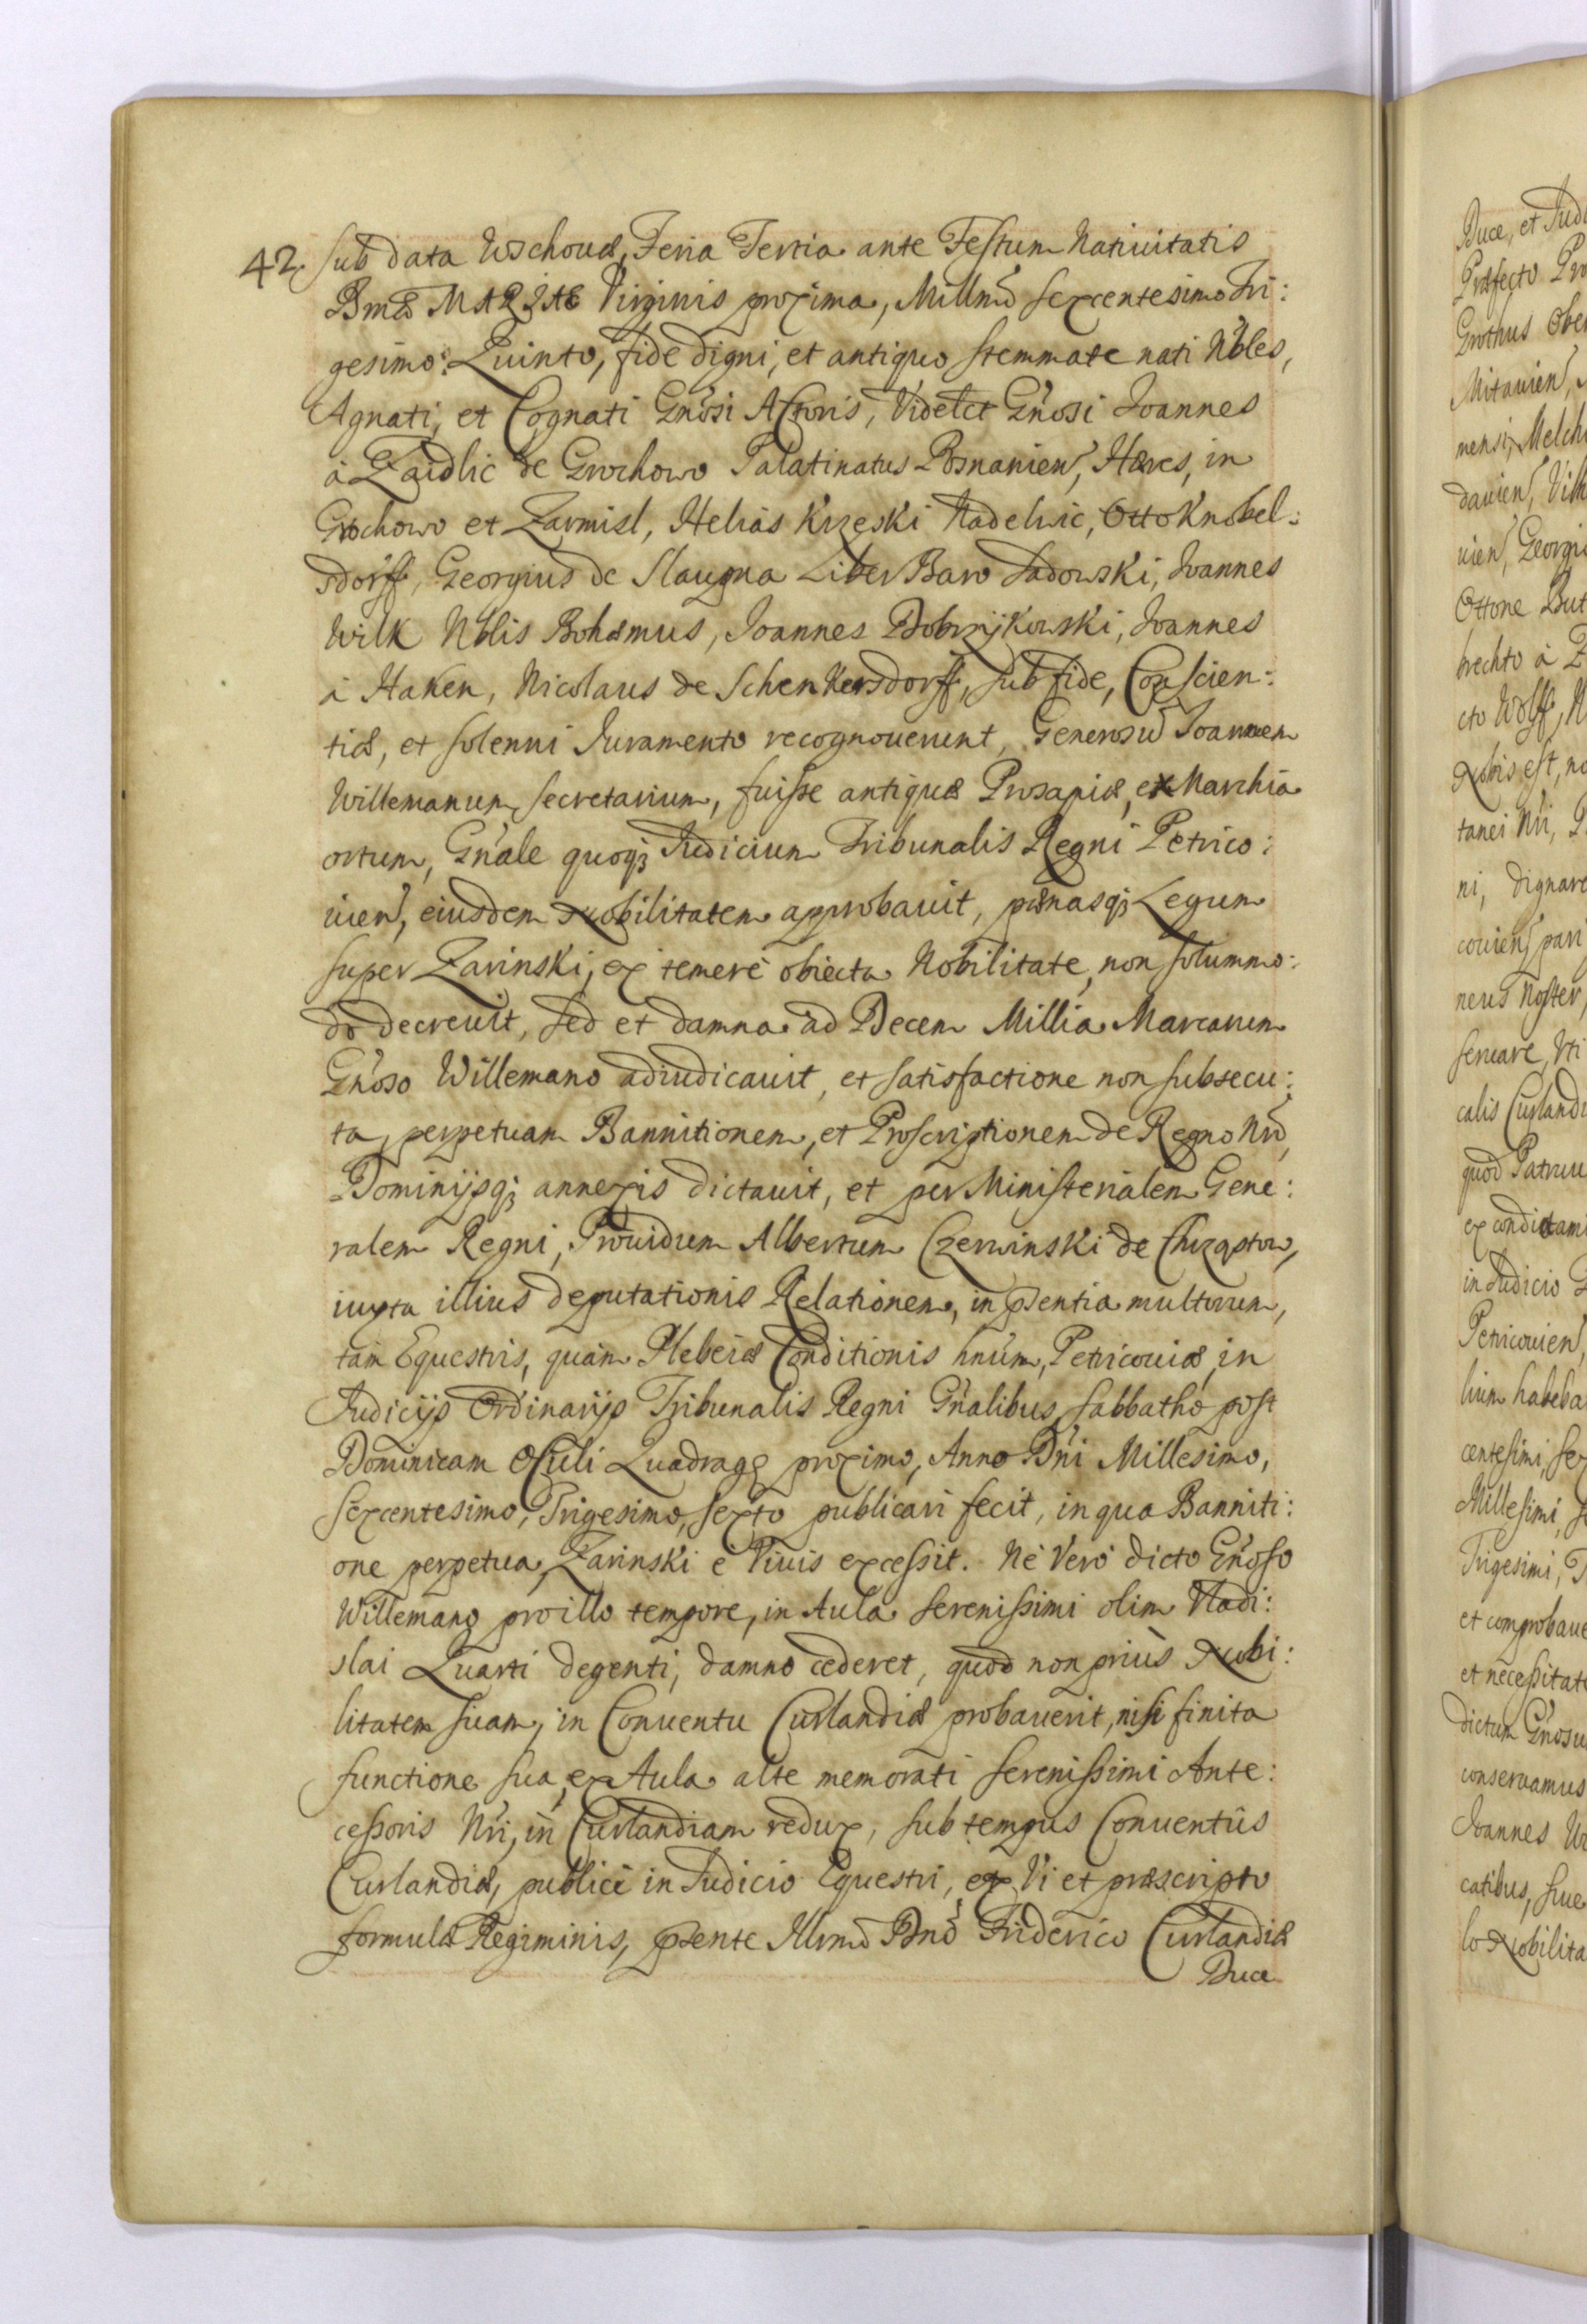 42. sub data Wschouæ, Feria Tertia ante Festum Natiuitatis
Bmæ MARIAE Virginis proxima, Millmo sexcentesimo Tri:
gesimo: Quinto, fide digni, et antiquo stemmate nati Nobles,
Agnati, et Cognati Gnosi Actoris, Videlct Gnosi Joannes
à Zaidlic de Grochowo Palatinatus Posnanien, Hæres, in
Grochowo et Zarmisl, Helias Krzęski Nadelwic, Otto Knobel:
sdorff, Georgius de Slaugna Liber Baro Sadowski, Joannes
Wilk Nblis Bohæmus, Joannes Dobrzÿkowski, Joannes
à Haken, Nicolaus de Schenkersdorff, sub fide, Conscien:
tiæ, et solenni Juramento recognouerunt, Generosũ Joannem
Willemanum, secretarium, fuisse antiquæ Prosapiæ, ex Marchia
ortum, Gnale quoq; Judicium Tribunalis Regni Petrico:
uien, eiusdem Nobilitatem approbauit, pœnasq; Legum
super Zarinski, ex temerè obiecta Nobilitate, non solummo:
do decreuit, sed et damna ad Decem Millia Marcarum
Gnoso Willemano adiudicauit, et satisfactione non subsecu:
ta, perpetuam Bannitionem, et Proscriptionem de Regno Nro,
Dominijsq; annexis dictauit, et per Ministerialem Gene:
ralem Regni, Prouidum Albertum Czerwinski de Chrząstow,
iuxta illius deputationis Relationem, in psentia multorum,
tàm Equestris, quàm Plebeiæ Conditionis hnum, Petricouiæ, in
Judicijs Ordinarijs Tribunalis Regni Gnalibus, sabbatho post
Dominicam Oculi Quadrag proximo, Anno Dni Millesimo,
sexcentesimo, Trigesimo, sexto publicari fecit, in qua Banniti:
one perpetua, Zarinski è Viuis excessit. Nè Verò dicto Gnoso
Willemano pro illo tempore, in Aula Serenissimi olim Vladi:
slai Quarti degenti, damno cederet, quod non priùs Nobi:
litatem suam, in Conuentu Curlandiæ probauerit, nisi finita
functione sua, ex Aula alte memorati Serenissimi Ante:
cessoris Nri, in Curlandiam redux, sub tempus Conuentûs
Curlandiæ, publicè in Judicio Equestri, ex Vi et præscripto
formulæ Regiminis, psente Illmo Dno Friderico Curlandiæ
Duce
Duce, et Judi
Præfecto Pro
Grothus Ober
Mitauien,
mensi, Melch
dauien, Vilh
uien, Georgi
Ottone But
brechto à Z
cto Wolff, N
Nobis est, no
tanei Nri,
ni, dignare
couien pari
neus Noster,
seruare, Vti
calis Curlandi
quod Patruu
ex condictami
in Judicio G
Petricouien,
lium habeba
centesimi, sex
Millesimi, s
Trigesimi, T
et comprobaue
et necessitat
dictum Gnosu
conseruamus
Joannes W
catibus, siue
lo Nobilita